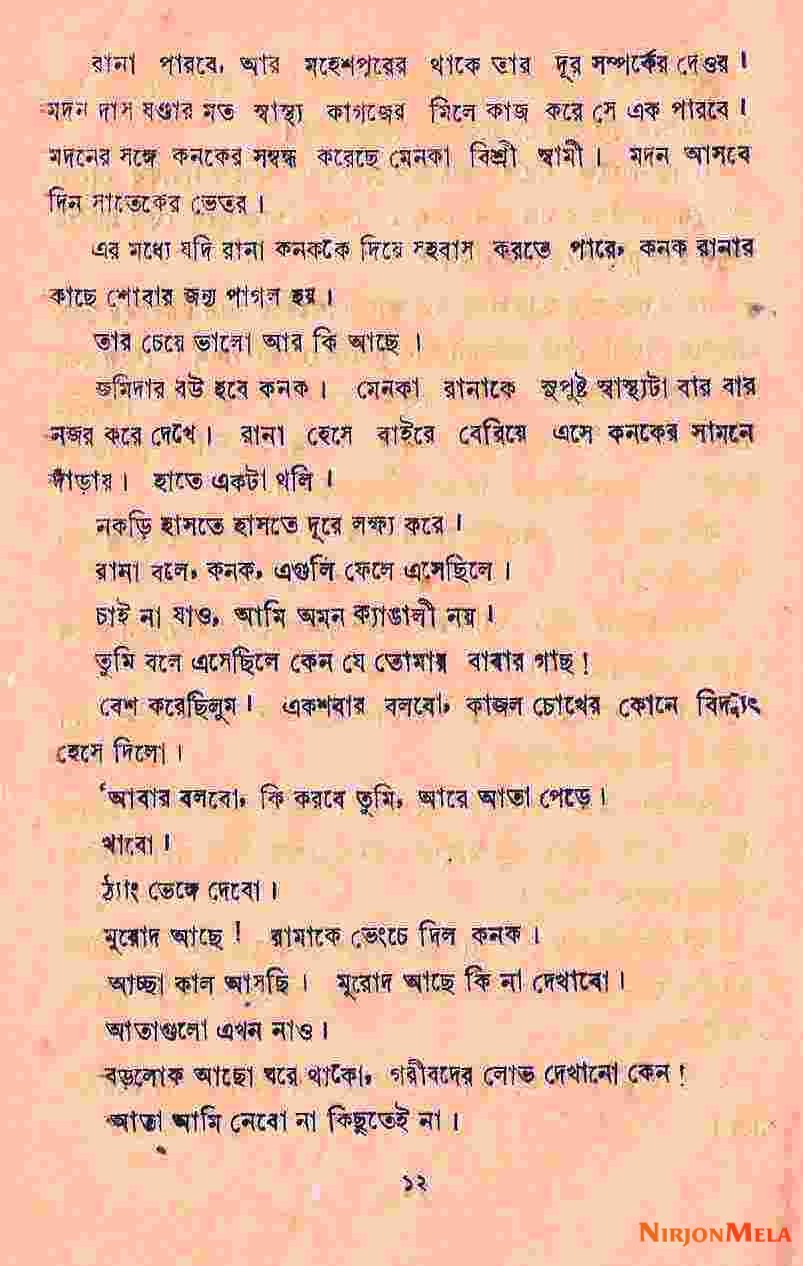 রানা পারবে, আর মহেশপুরের থাকে তার দূর সম্পর্কের দেওর।
মদন দাস ষণ্ডার মত স্বাস্থ্য কাগজের মিলে কাজ করে সে এক পারবে।
মদনের সঙ্গে কনকের সম্বন্ধ করেছে মেনকা বিশ্রী স্বামী। মদন আসবে
দিন সাতেকের ভেতর।
এর মধ্যে যদি রানা কনককে দিয়ে সহবাস করতে পারে, কনক রানার
কাছে শোবার জন্য পাগল হয়।
তার চেয়ে ভালো আর কি আছে।
জমিদার বউ হবে কনক। মেনকা রানাকে সুপুষ্ট স্বাস্থ্যটা বার বার
নজর করে দেখে। রানা হেসে বাইরে বেরিয়ে এসে কনকের সামনে
দাঁড়ায়। হাতে একটা থলি।
নকড়ি হাসতে হাসতে দূরে লক্ষ্য করে।
রানা বলে, কনক, এগুলি ফেলে এসেছিলে।
চাই না যাও, আমি অমন ক্যাঙালী নয়।
তুমি বলে এসেছিলে কেন যে তোমায় বাবার গাছ!
বেশ করেছিলুম। একশবার বলবো, কাজল চোখের কোনে বিদ্যুৎ
হেসে দিলো।
'আবার বলবো, কি করবে তুমি, আরে আতা পেড়ে।
খাবো।
ঠ্যাং ভেঙ্গে দেবো।
মুরোদ আছে! রামাকে ভেংচে দিল কনক।
আচ্ছা কাল আসছি। মুরোদ আছে কি না দেখাবো।
আতাগুলো এখন নাও।
বড়লোক আছো ঘরে থাকো, গরীবদের লোভ দেখানো কেন!
আতা আমি নেবো না কিছুতেই না।
১২
NIRJONMELA